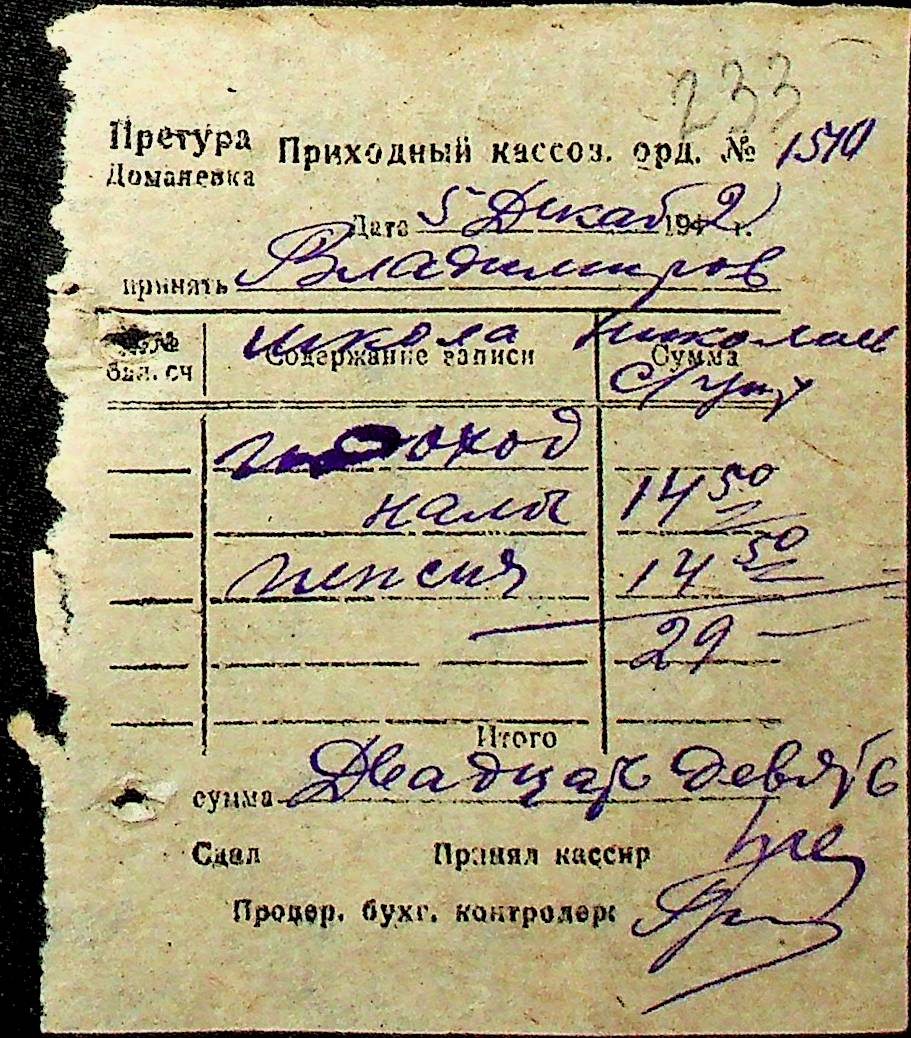 233
Претура Приходный кассов. орд. №
Доманевка
Дата 5 Декаб 1942 г.
принять Владимиров
школа Николаи
№№ Содержание записи Сумма
бал. сч
поход
нало 14 50
пенсия 14 50
29 —
Итого
сумма Двадцать девять
Сдал Принял кассир
Провер. бухг. контролер: